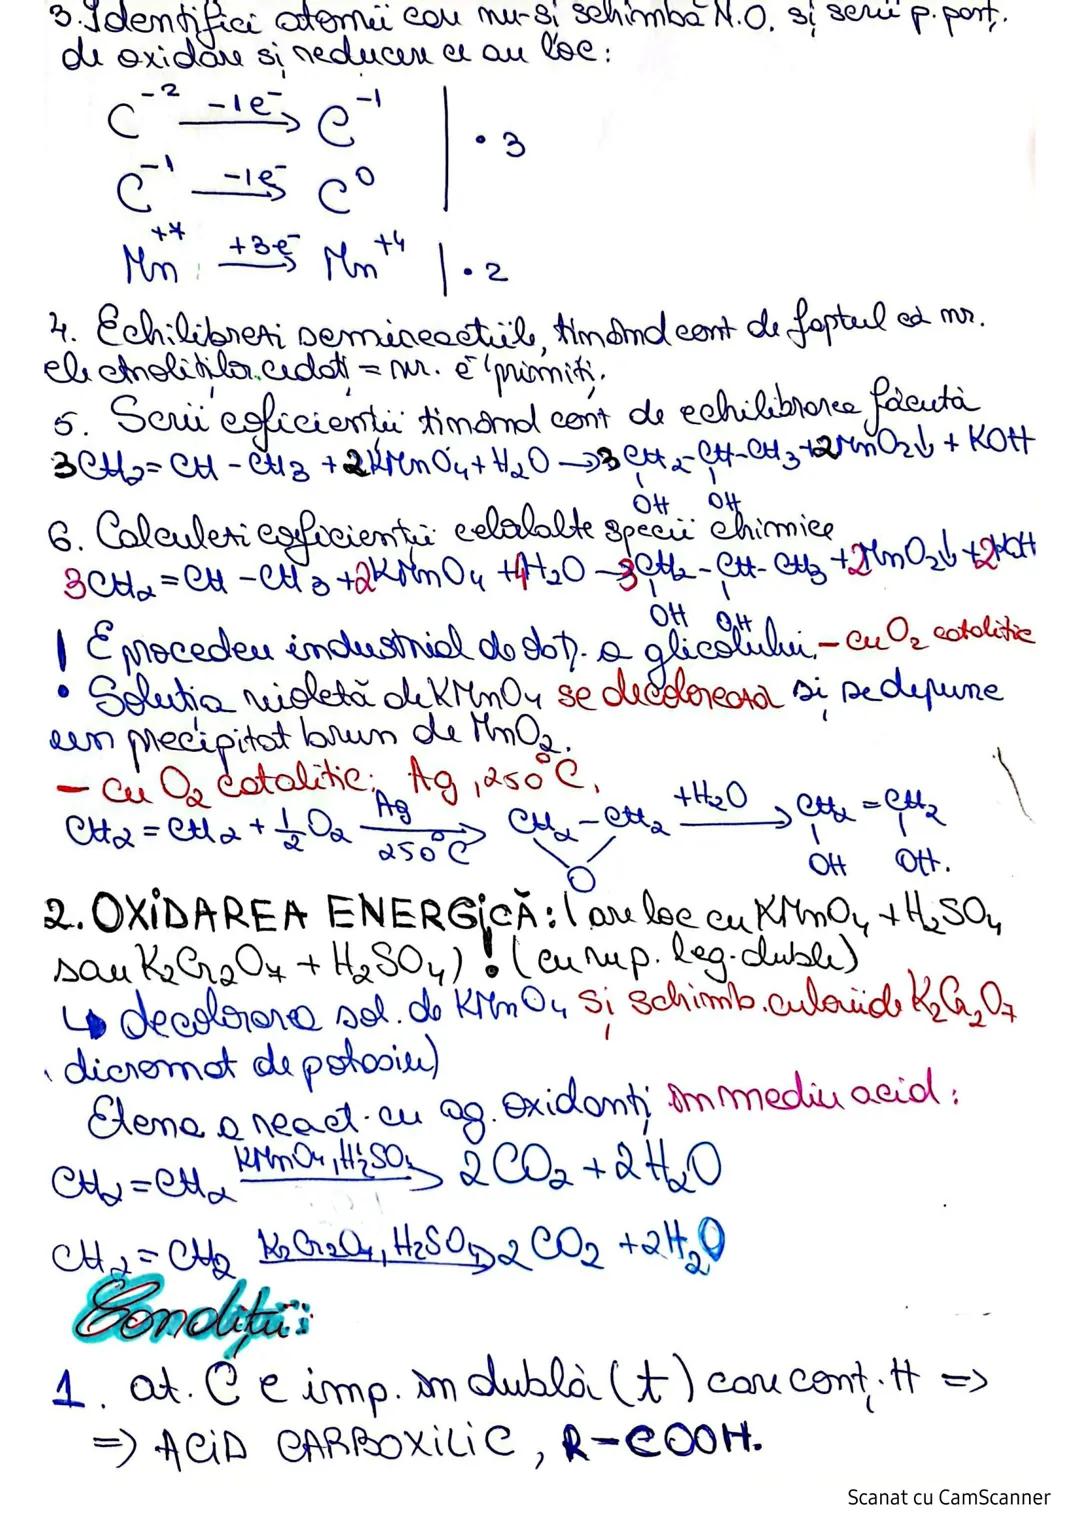 3. Identifici atomii care nu-și schimbă N.O. și scrii p. part.
de oxidare și reducere ce au loc:
C⁻² —-1e⁻→ C⁻¹ | · 3
C⁻¹ —-1e⁻→ C⁰
Mn⁺⁷ —+3e⁻→ Mn⁺⁴ | · 2
4. Echilibrezi semireacțiile, ținând cont de faptul că nr.
electroliților cedați = nr. e⁻ primiți.
5. Scrii coeficienții ținând cont de echilibrarea făcută
3CH₂=CH-CH₃+2KMnO₄+H₂O→3CH₂-CH-CH₃+2MnO₂↓+KOH
OH OH
6. Calculezi coeficienții celalalte specii chimice
3CH₂=CH-CH₃+2KMnO₄+4H₂O→3CH₂-CH-CH₃+2MnO₂↓+2KOH
OH OH
! E procedeu industrial de obț. a glicolului - cu O₂ catalitic
• Soluția violetă de KMnO₄ se decolorează și se depune
un precipitat brun de MnO₂.
- cu O₂ catalitic: Ag, 250°C.
CH₂=CH₂+½O₂ —Ag 250°C→ CH₂-CH₂ —+H₂O→ CH₂=CH₂
O OH OH.
2. OXIDAREA ENERGICĂ: (are loc cu KMnO₄+H₂SO₄
sau K₂Cr₂O₇+H₂SO₄)! (cu rup. leg. duble)
↳ decolorarea sol. de KMnO₄ și schimb. culorii de K₂Cr₂O₇
dicromat de potasiu)
Etena a react. cu ag. oxidanți în mediu acid:
CH₂=CH₂ —KMnO₄, H₂SO₄→ 2CO₂+2H₂O
CH₂=CH₂ —K₂Cr₂O₇, H₂SO₄→ 2CO₂+2H₂O
Condiții:
1. at. C e imp. în dublă (t) care conț. H =>
=> ACID CARBOXILIC, R-COOH.
Scanat cu CamScanner